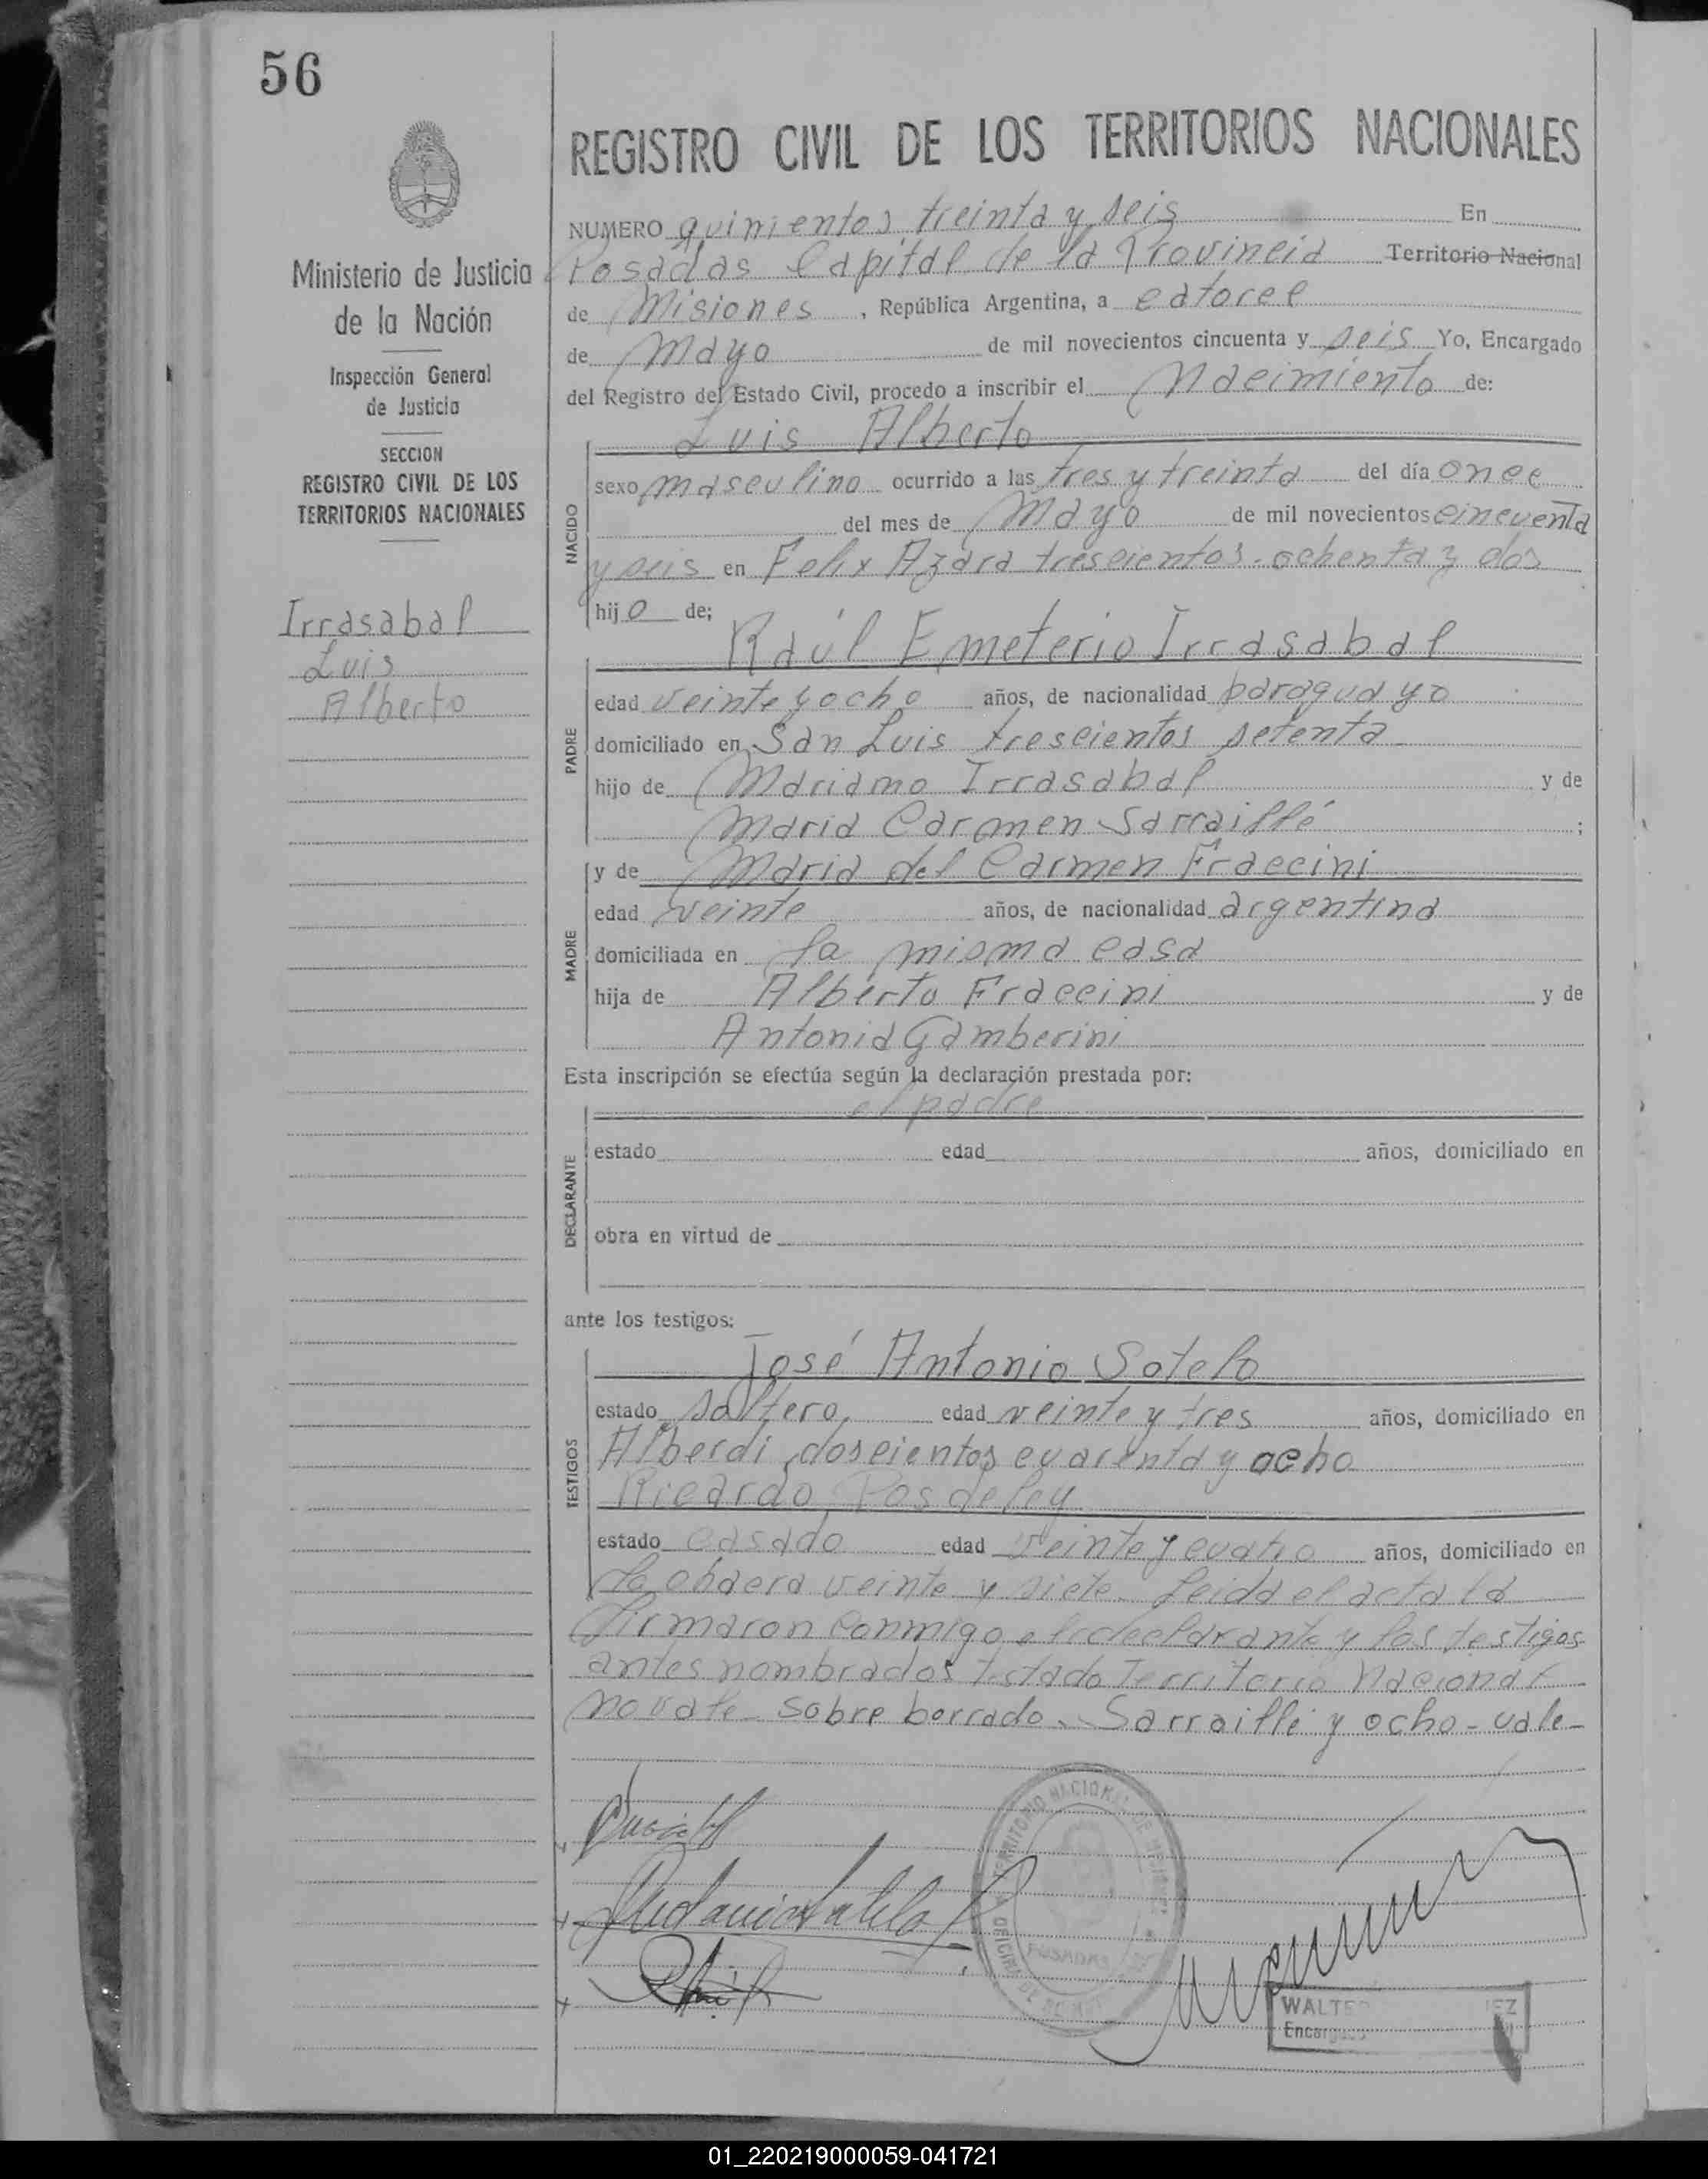 56
REGISTRO CIVIL DE LOS TERRITORIOS NACIONALES
Ministerio de Justicia
de la Nación
Inspección General
de Justicia
SECCION
REGISTRO CIVIL DE LOS
TERRITORIOS NACIONALES
Irrasabal
Luis
Alberto
NUMERO quinientos treinta y seis En
Posadas Capital de la Provincia Territorio Nacional
de Misiones, República Argentina, a catorce
de Mayo de mil novecientos cincuenta y seis Yo, Encargado
del Registro del Estado Civil, procedo a inscribir el Nacimiento de:
Luis Alberto
NACIDO
sexo masculino ocurrido a las tres y treinta del día once
del mes de Mayo de mil novecientos cincuenta
y seis en Felix Azara trescientos ochenta y dos
hijo de;
Raúl Emeterio Irrasabal
PADRE
edad veinte y ocho años, de nacionalidad paraguayo
domiciliado en San Luis trescientos setenta
hijo de Mariano Irrasabal y de
Maria Carmen Sarraillé ;
MADRE
y de Maria del Carmen Fraccini
edad veinte años, de nacionalidad argentina
domiciliada en la misma casa
hija de Alberto Fraccini y de
Antonia Gamberini
Esta inscripción se efectúa según la declaración prestada por:
el padre
DECLARANTE
estado edad años, domiciliado en
obra en virtud de
ante los testigos:
José Antonio Sotelo
TESTIGOS
estado soltero, edad veinte y tres años, domiciliado en
Alberdi doscientos cuarenta y ocho
Ricardo
estado casado edad veinte y cuatro años, domiciliado en
veinte y siete. Leida el acta la
firmaron conmigo el declarante y los testigos
antes nombrados testado Territorio Nacional
no vale - sobre borrado - Sarraillé y ocho - vale -
POSADAS
WALTE
Encar
01_220219000059-041721